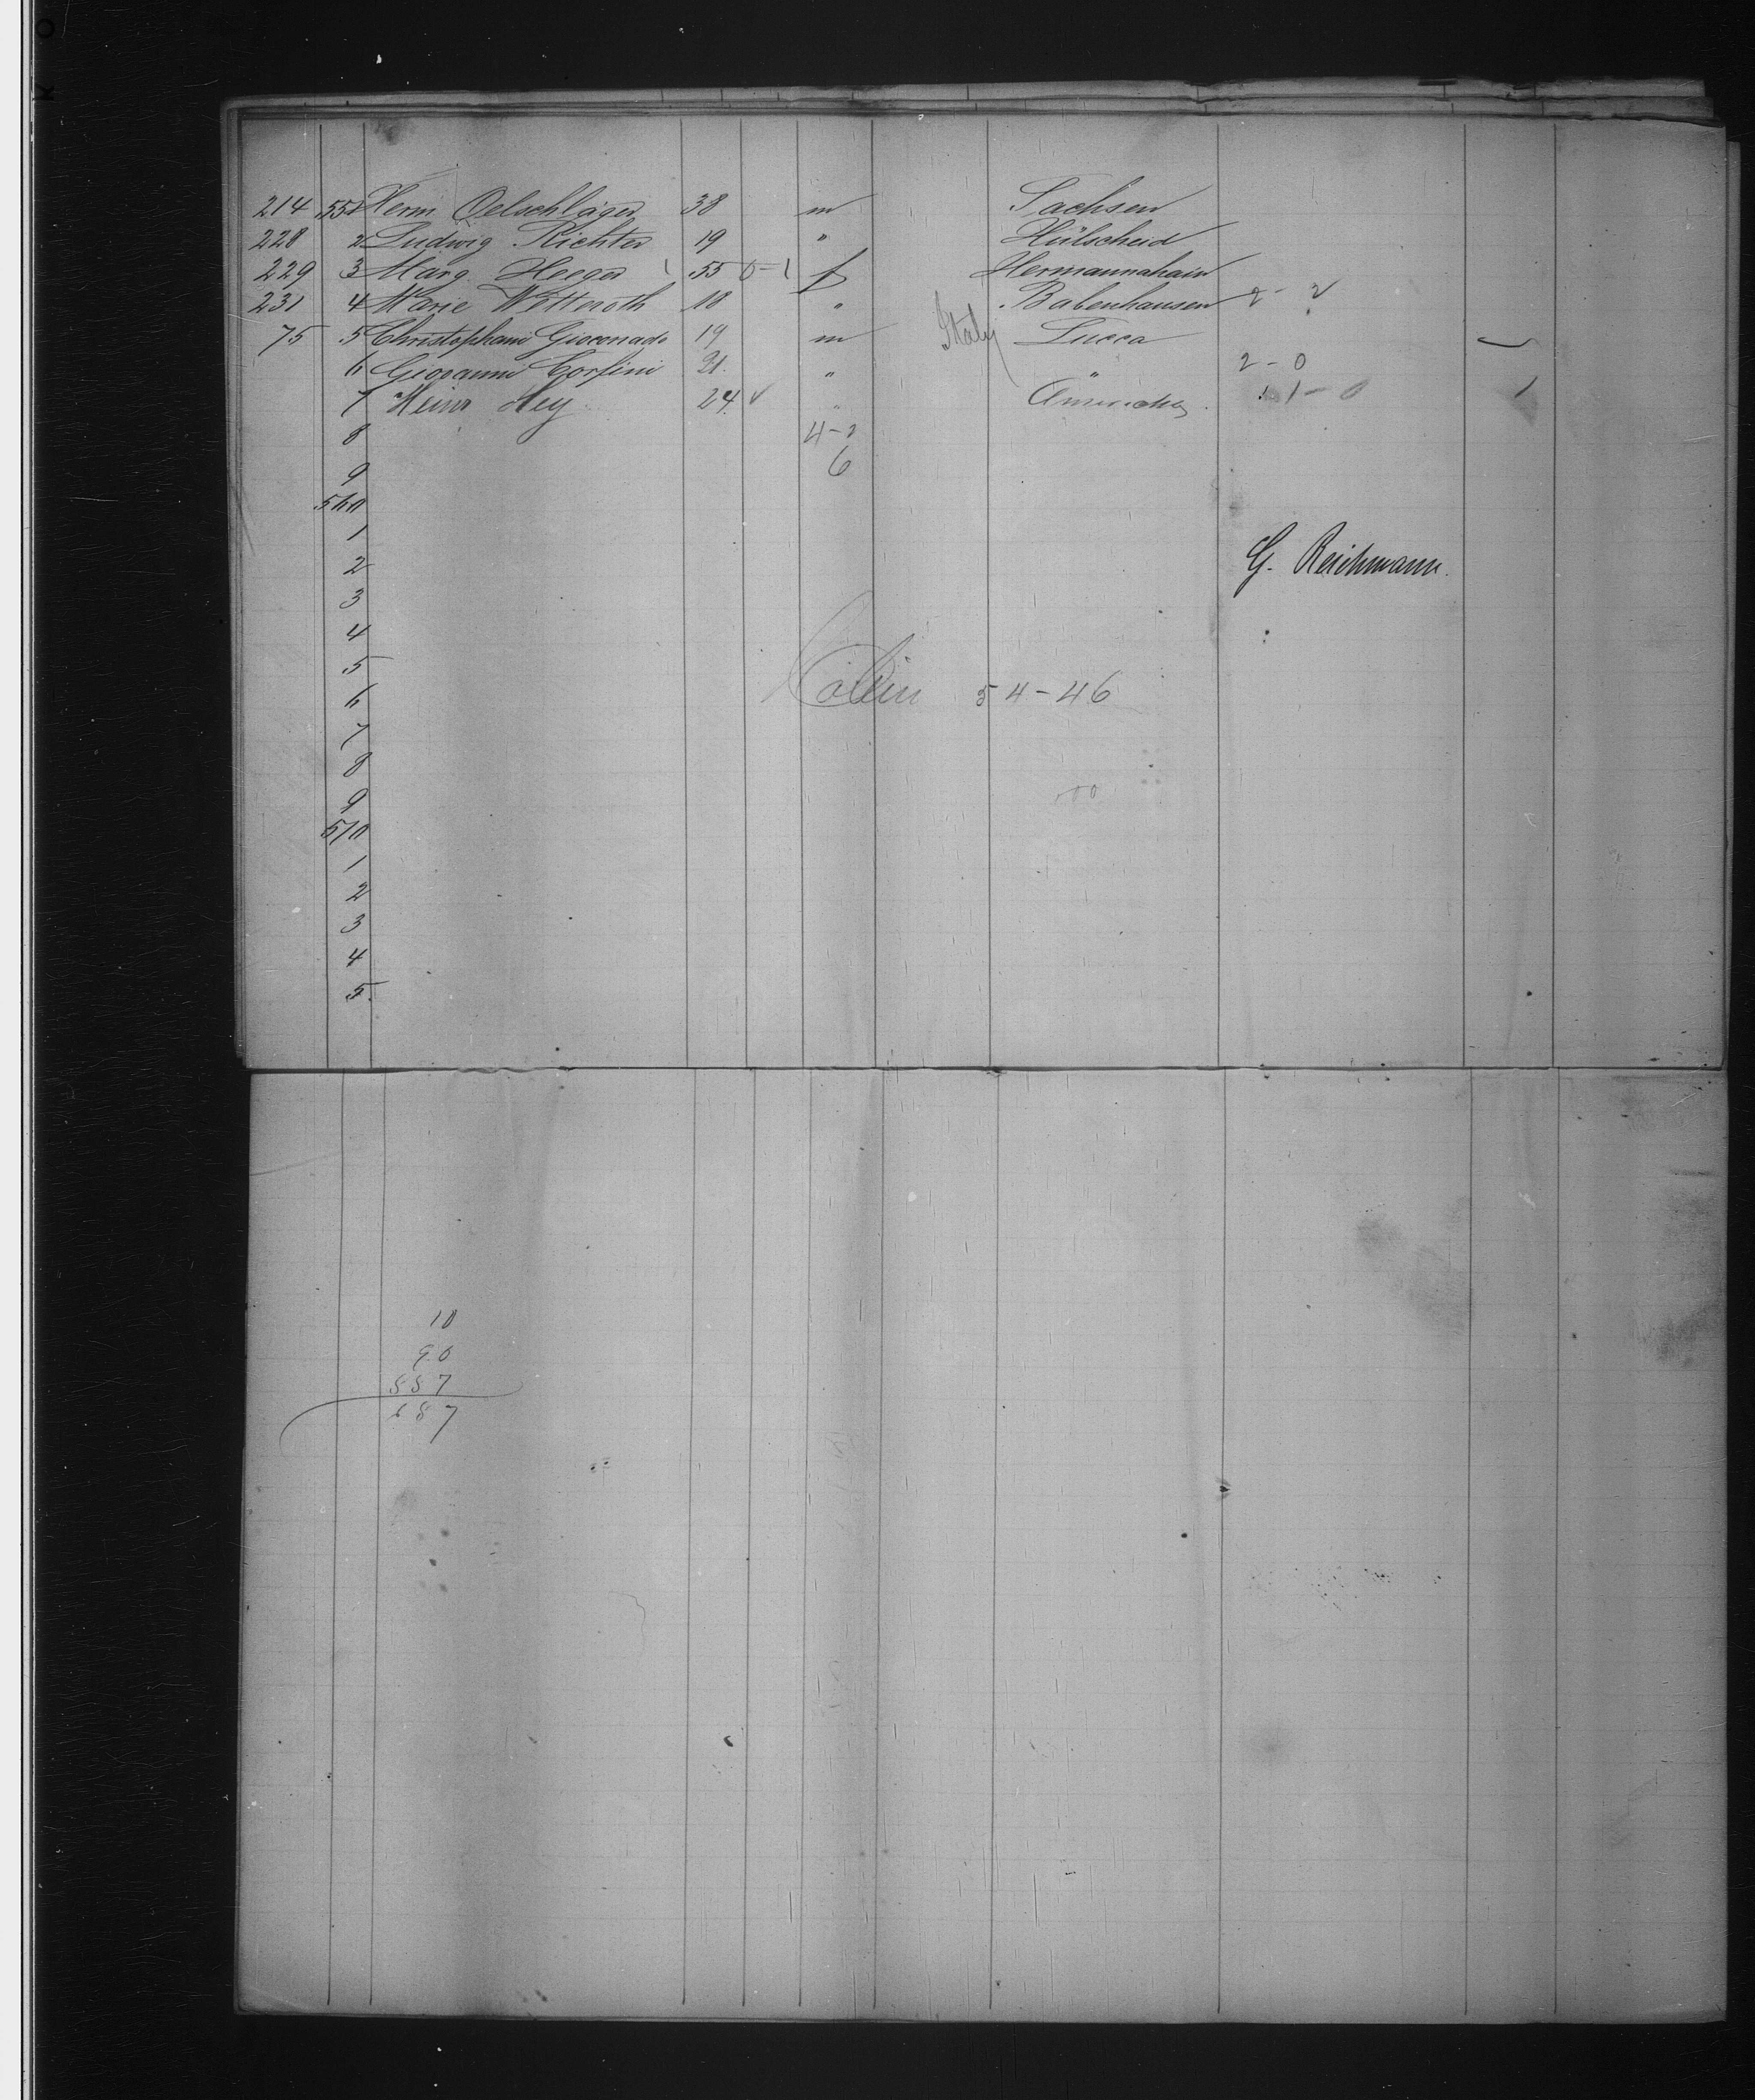 214 551 Herm. Oelschläger 38 m Sachsen
228 2 Ludwig Richter 19 " Hülscheid
229 3 Marg. Heeger 55 0-1 f Hermannshain
231 4 Marie Witteroth 18 " Babenhausen 2-2
75 5 Christophani 19 m Italy Lucca
6 Giovanni Corfini 21. " " 2-0
7 Heinr Hey 24 " 1-0 1
8 4-2
9 6
560
1
2 G. Reichmann.
3
4
5
6 Cabin 54-46
7
8
9
570
1
2
3
4
5.
10
90
587
687